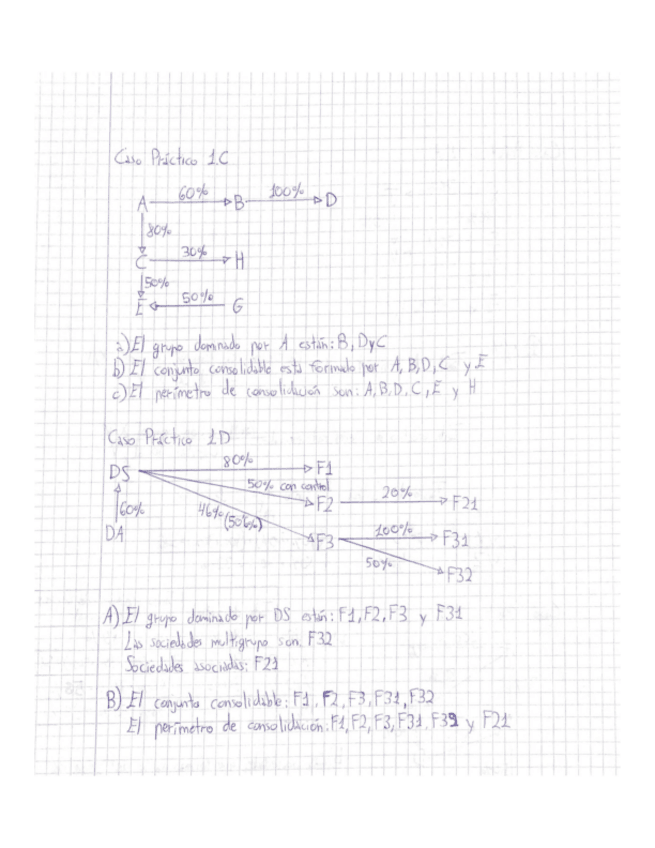 Caso Práctico 1.C
A 60% B 100% D
80%
C 30% H
50%
E 50% G
a) El grupo dominado por A están: B, D y C
b) El conjunto consolidable está formado por A, B, D, C y E
c) El perímetro de consolidación son: A, B, D, C, E y H
Caso Práctico 1D
DS 80% F1
50% con control F2 20% F21
60% 46% (50%) F3 100% F31
DA 50% F32
A) El grupo dominado por DS están: F1, F2, F3 y F31
Las sociedades multigrupo son F32
Sociedades asociadas: F21
B) El conjunto consolidable: F1, F2, F3, F31, F32
El perímetro de consolidación: F1, F2, F3, F31, F32 y F21